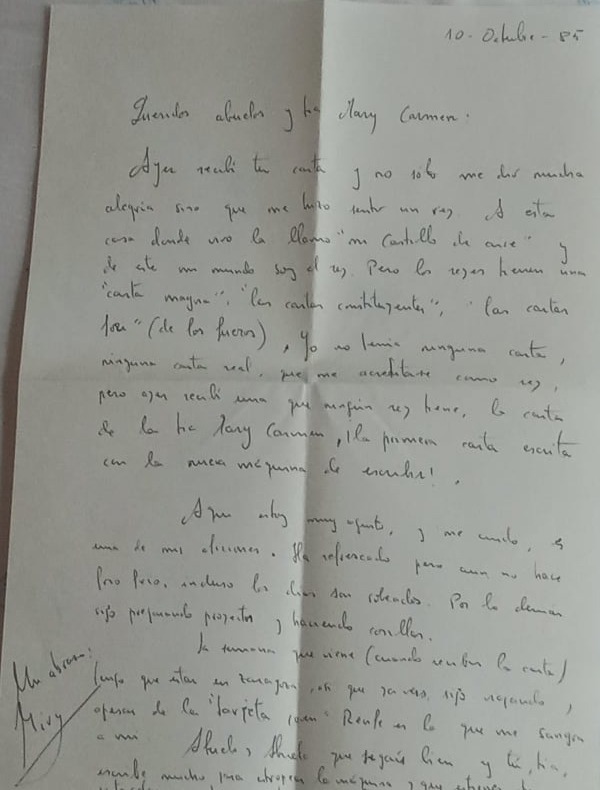 10 - Octubre - 85
Queridos abuelos y tía Mary Carmen:
Ayer recibí tu carta y no sólo me dió mucha
alegría sino que me hizo sentir un rey. A esta
casa donde vivo la llamo "mi Castillo de aire" y
de este mi mundo soy el rey. Pero los reyes tienen una
"carta magna", "las cartas constituyentes", "las cartas
(de los fueros), Yo no tenía ninguna carta,
ninguna carta real, que me acreditase como rey,
pero ayer recibí una que ningún rey tiene, la carta
de la tía Mary Carmen, ¡la primera carta escrita
con la nueva máquina de escribir!.
Aquí estoy muy agusto, y me cuido, es
una de mis aficiones. Ha refrescado pero aun no hace
frío frío, incluso los días son soleados. Por lo demás
sigo preparando proyectos y haciendo cosillas.
La semana que viene (cuando recibas la carta)
tengo que estar en Zaragoza, así que ya ves, sigo viajando,
apesar de la "tarjeta Renfe es lo que me sangra
a mi Abuelo, Abuela que sigáis bien y tú, tía,
escribe mucho para la máquina y que
Un abrazo: